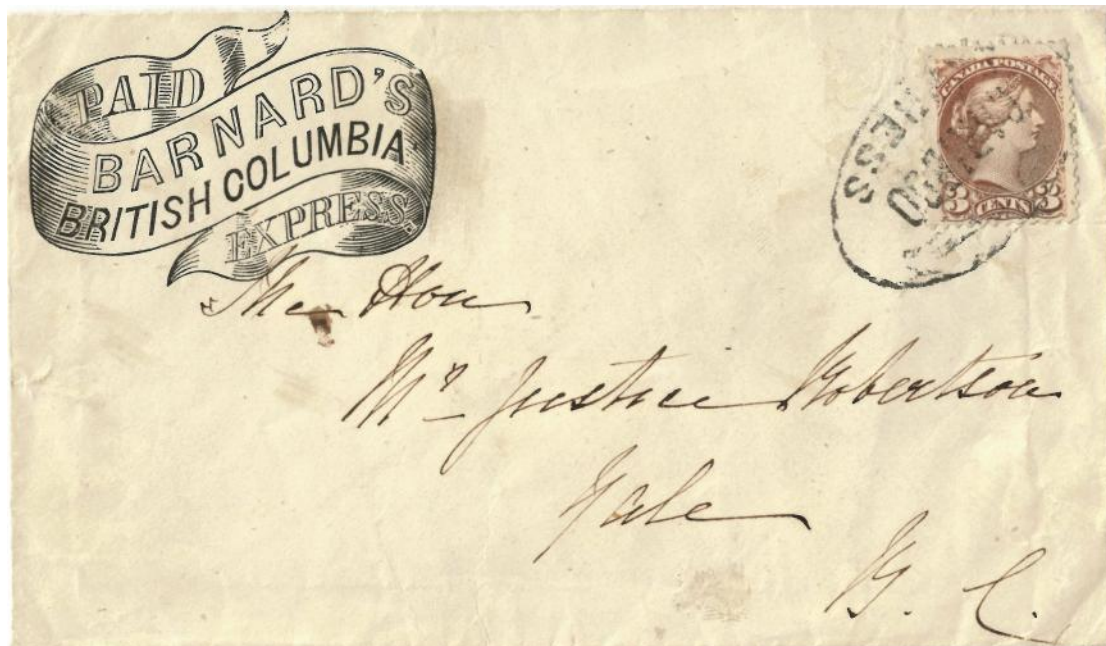 PAID
BARNARD'S
BRITISH COLUMBIA
EXPRESS.
CANADA POSTAGE
3 CENTS 3
The Hon
Mr Justice Robertson
Yale
B. C.